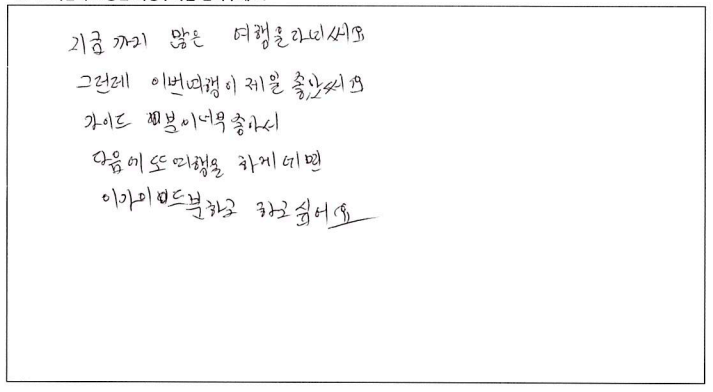 지금 까지 많은 여행을다녀씨요
그런데 이번여행이 제일 좋았씨요
가이드 분이너무 좋아서
다음에 또 여행을 하게데면
이가이드분하고 하고싶어요